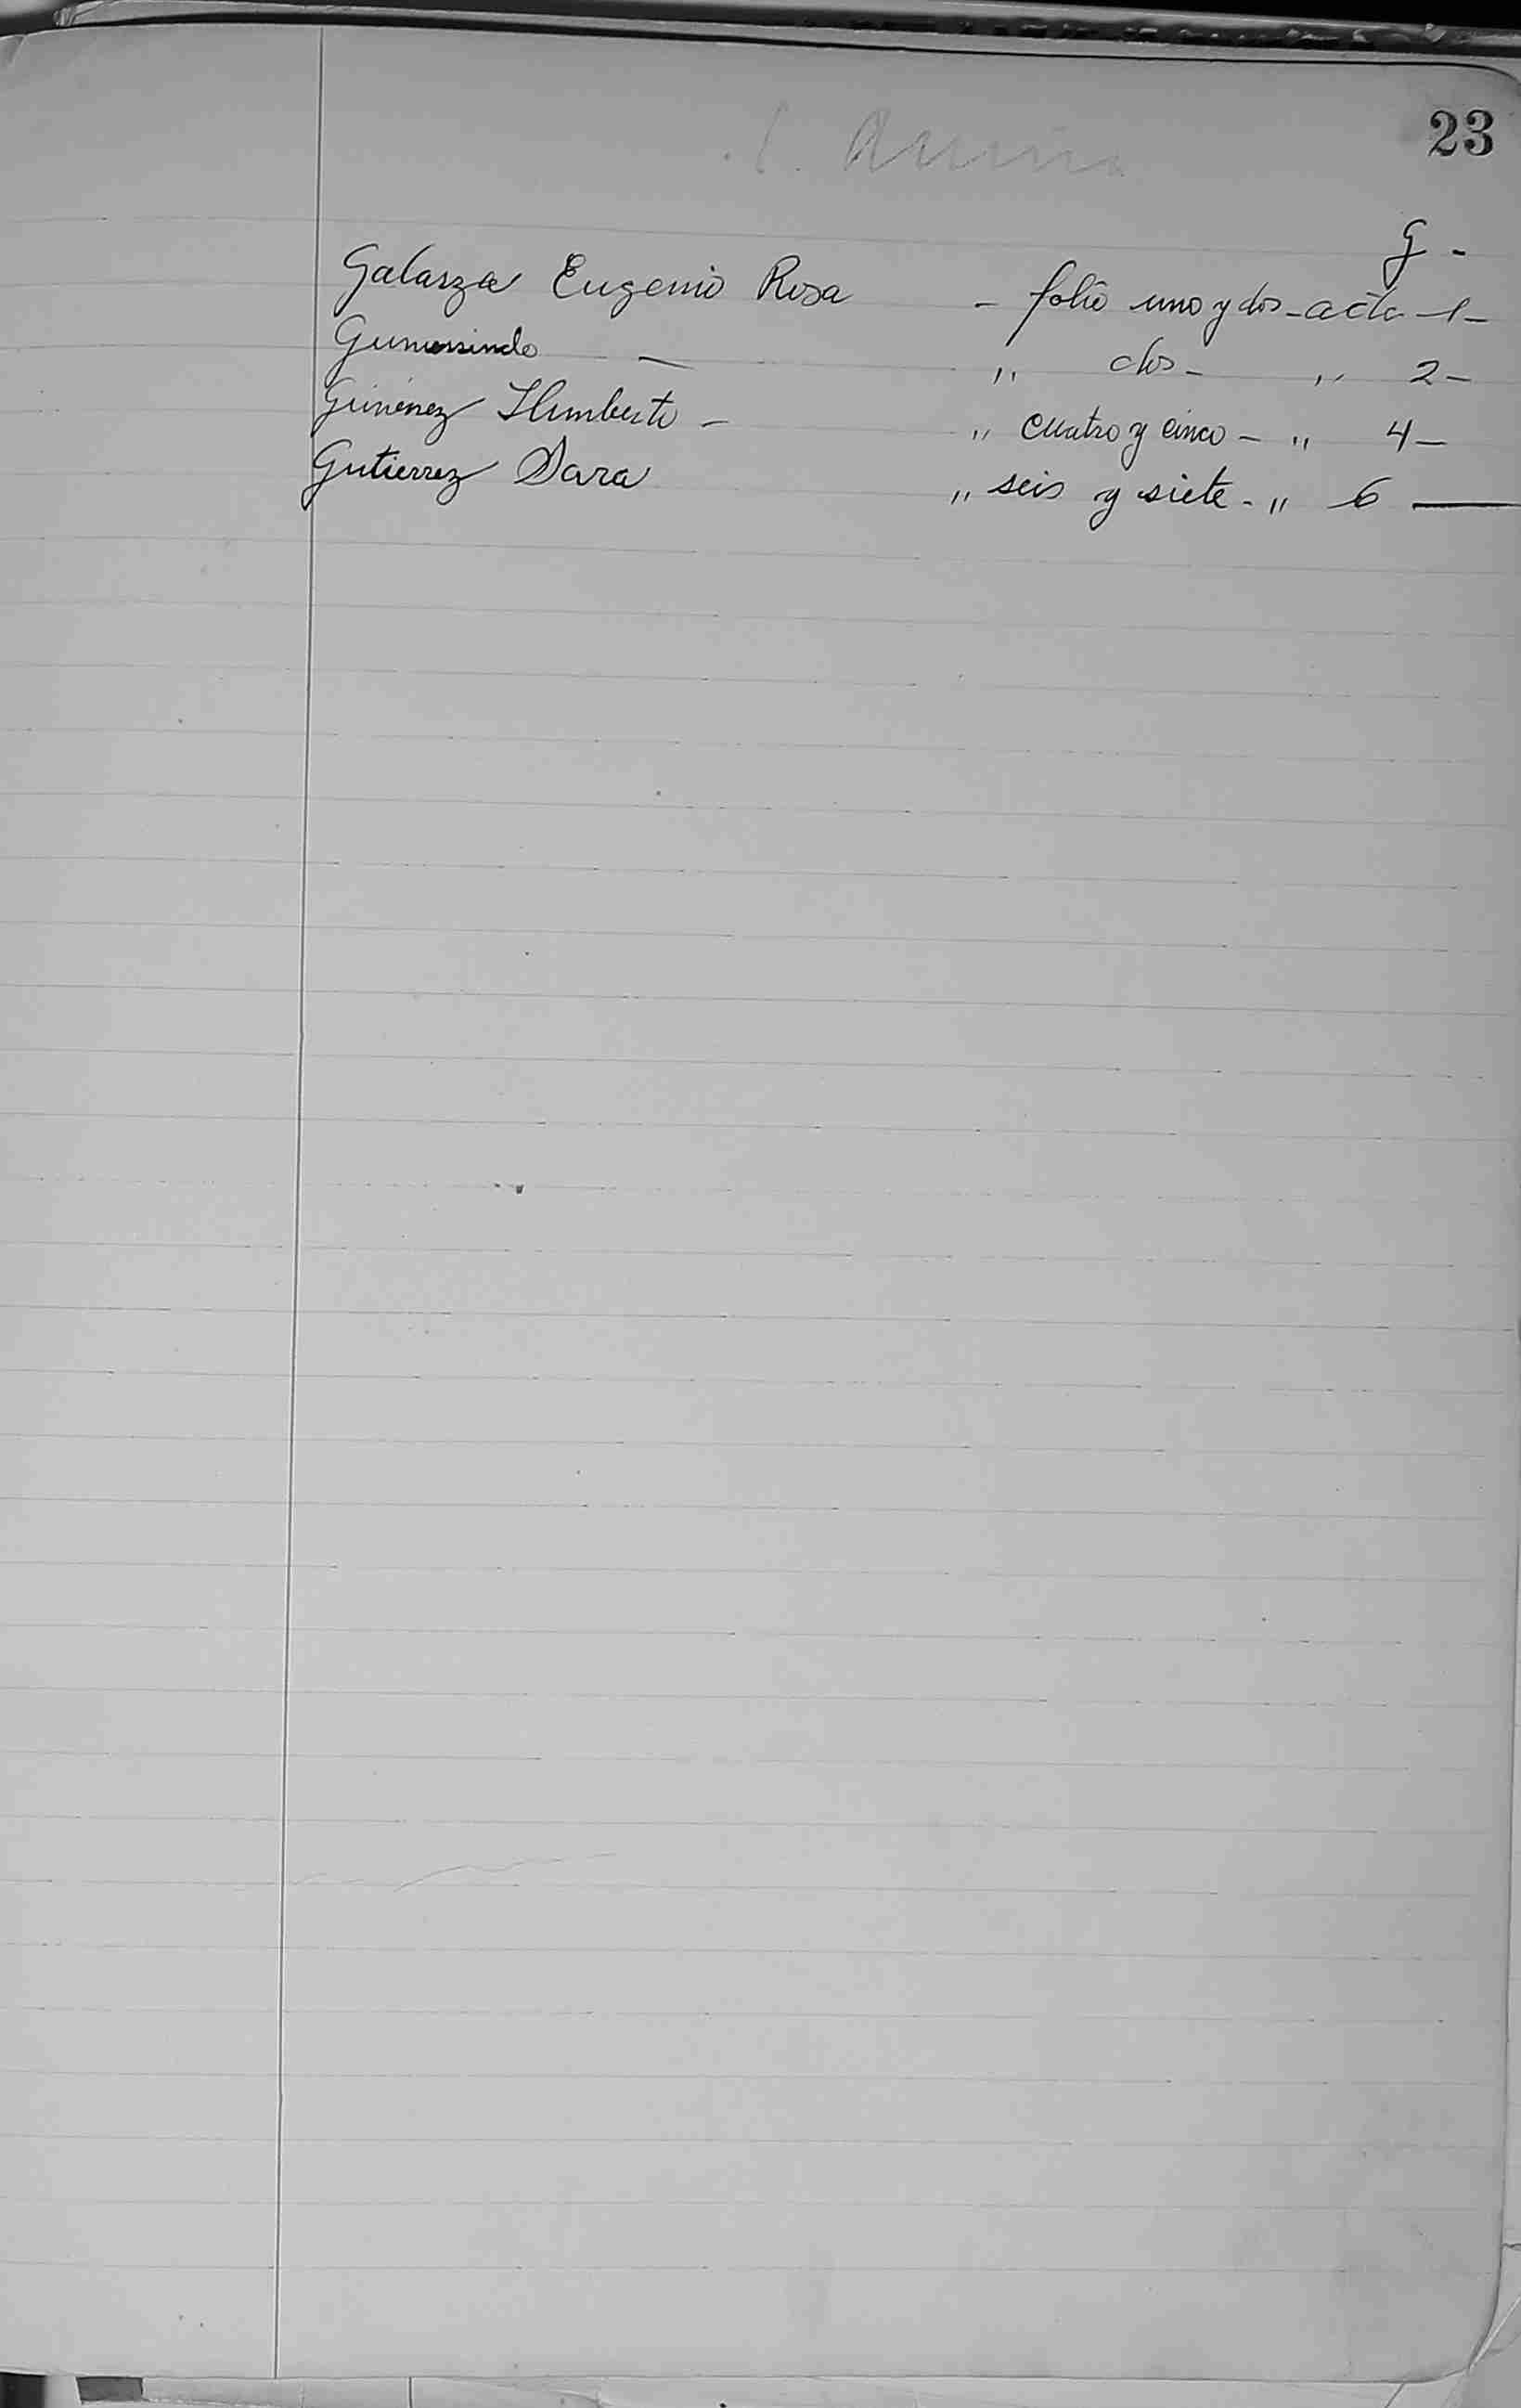 23
G -
Galarza Eugenio Rosa - folio uno y dos - acta - 1 -
Gumersindo — " dos - " 2 -
Gimenez Humberto - " cuatro y cinco - " 4 -
Gutierrez Sara " seis y siete - " 6 —